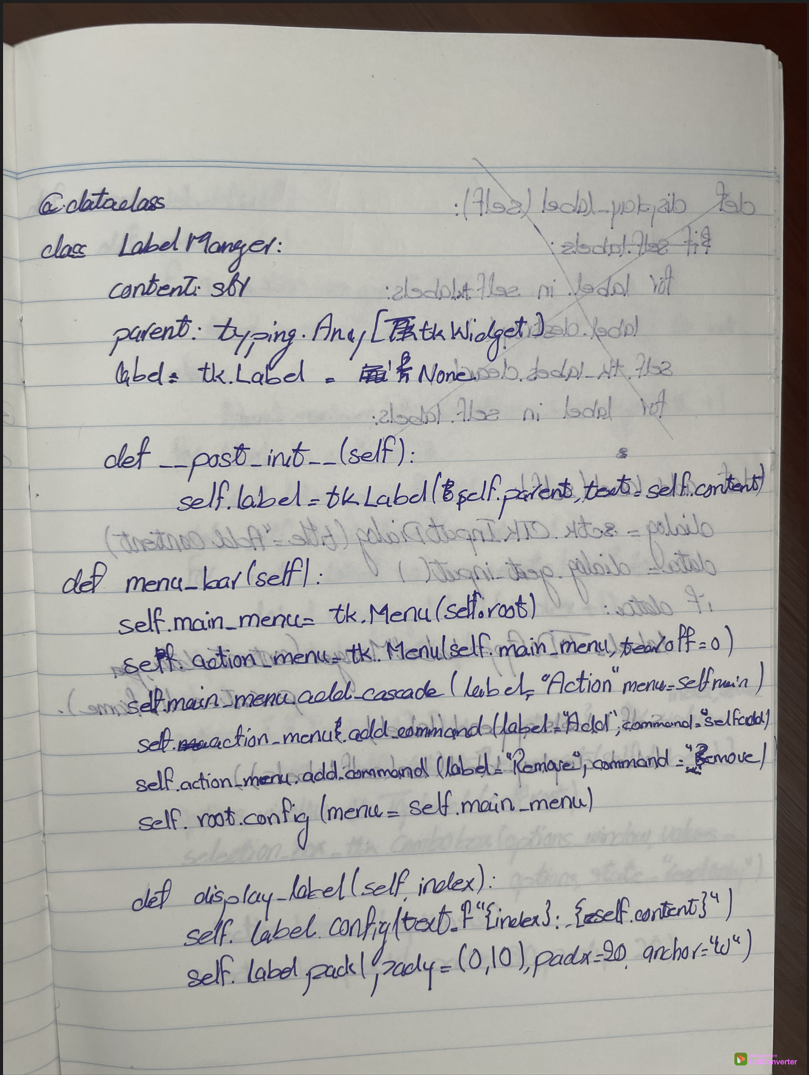 @dataclass
class LabelManger:
content: str
parent: typing.Any[tkWidget]
label= tk.Label = None
def __post_init__(self):
self.label=tk.Label(self.parent, text=self.content)
def menu_bar(self):
self.main_menu= tk.Menu(self.root)
self.action_menu=tk.Menu(self.main_menu, tearoff=0)
self.main_menu.add_cascade (label= "Action" menu=self main)
self.action_menu.add_command(label="Add", command="selfadd)
self.action_menu.add.command (label="Remove", command="Remove)
self.root.config(menu=self.main_menu)
def display_label(self, index):
self.label.config(text=f"{index}: {self.content}")
self.label pack(pady=(0,10), padx=20, anchor="w")